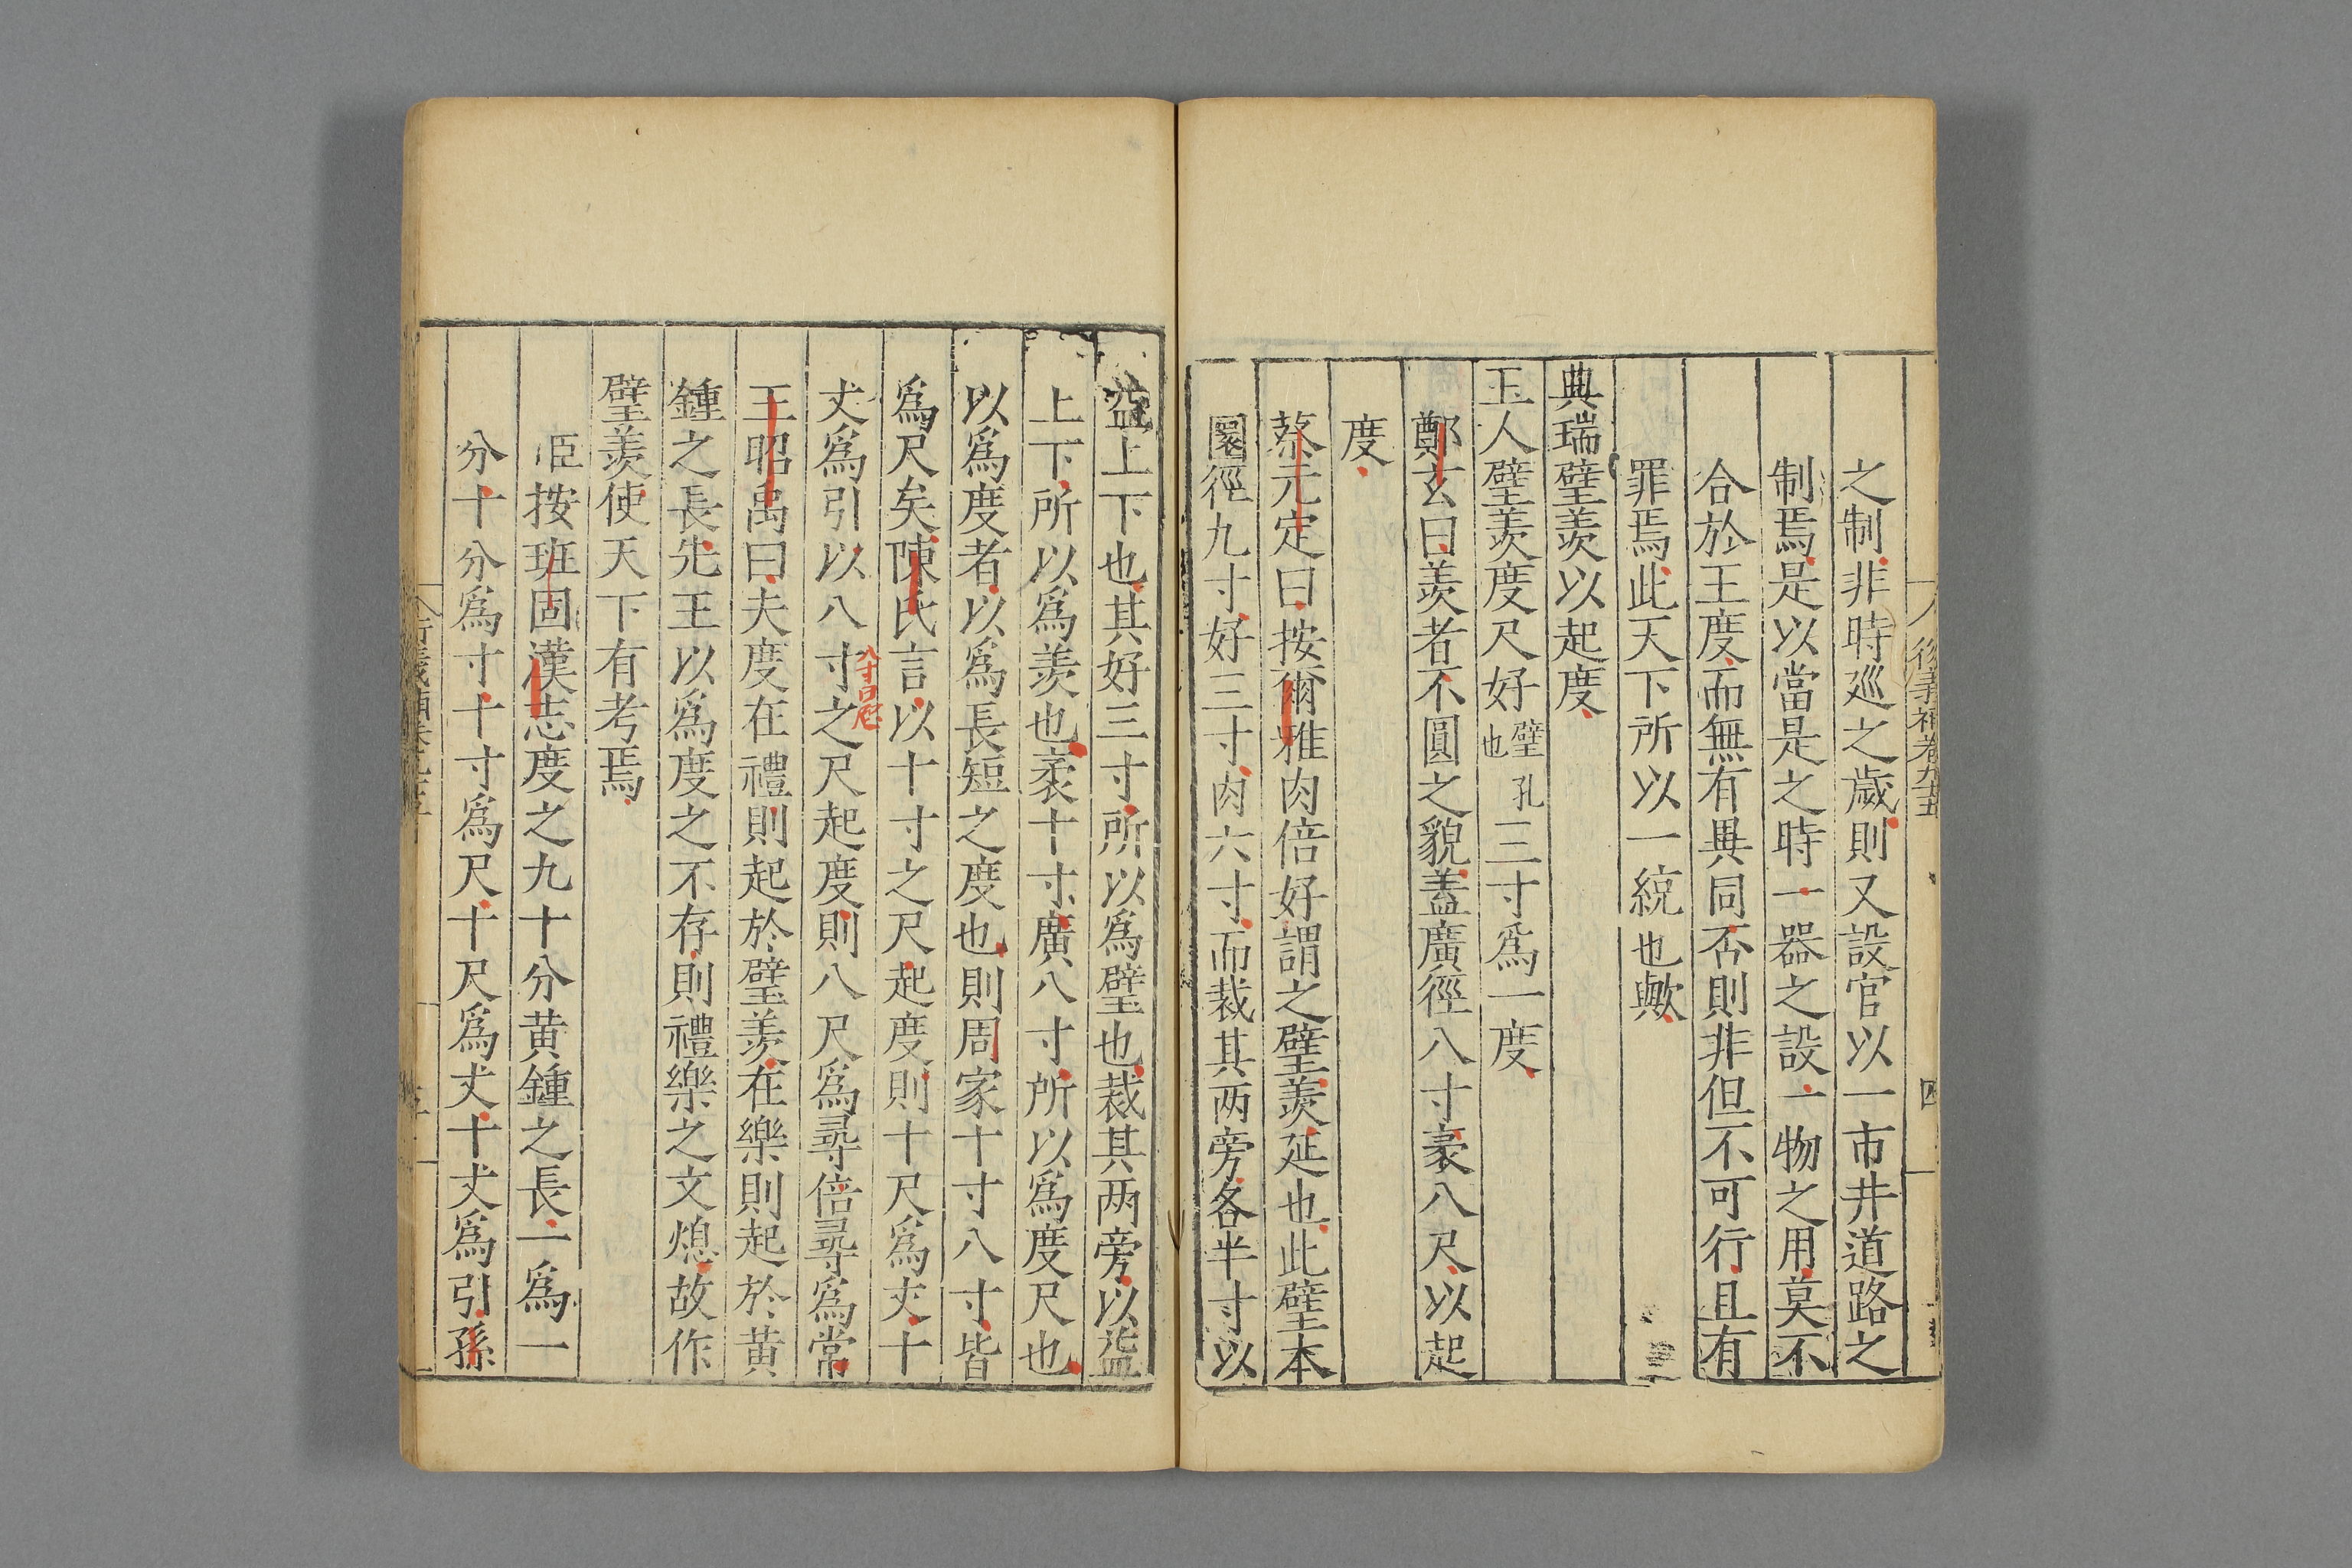 之制非時廵之歲則又設官以一市井道路之
制焉是以當是之時一器之設一物之用莫不
合於王度而無有異同否則非但不可行且有
罪焉此天下所以一統也歟
典瑞璧羨以起度
玉人璧羨度尺好璧孔也三寸爲一度
鄭玄曰羨者不圓之貌蓋廣徑八寸袤八尺以起
度
蔡元定曰按爾雅肉倍好謂之璧羨延也此璧本
圜徑九寸好三寸肉六寸而裁其兩旁各半寸以
益上下也其好三寸所以爲璧也裁其兩旁以益
上下所以爲羨也袤十寸廣八寸所以爲度尺也
以爲度者以爲長短之度也則周家十寸八寸皆
爲尺矣陳氏言以十寸之尺起度則十尺爲丈十
丈爲引以八寸之尺起度則八尺爲尋倍尋爲常
王昭禹曰夫度在禮則起於璧羨在樂則起於黄
鍾之長先王以爲度之不存則禮樂之文熄故作
璧羨使天下有考焉
臣按班固漢志度之九十分黄鍾之長一爲一
分十分爲寸十寸爲尺十尺爲丈十丈爲引孫